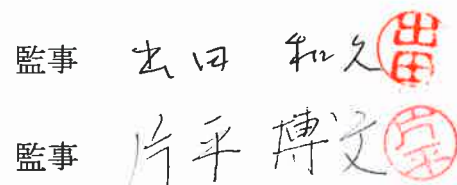 監事 出田 和久 出田
監事 片平 博文 片平